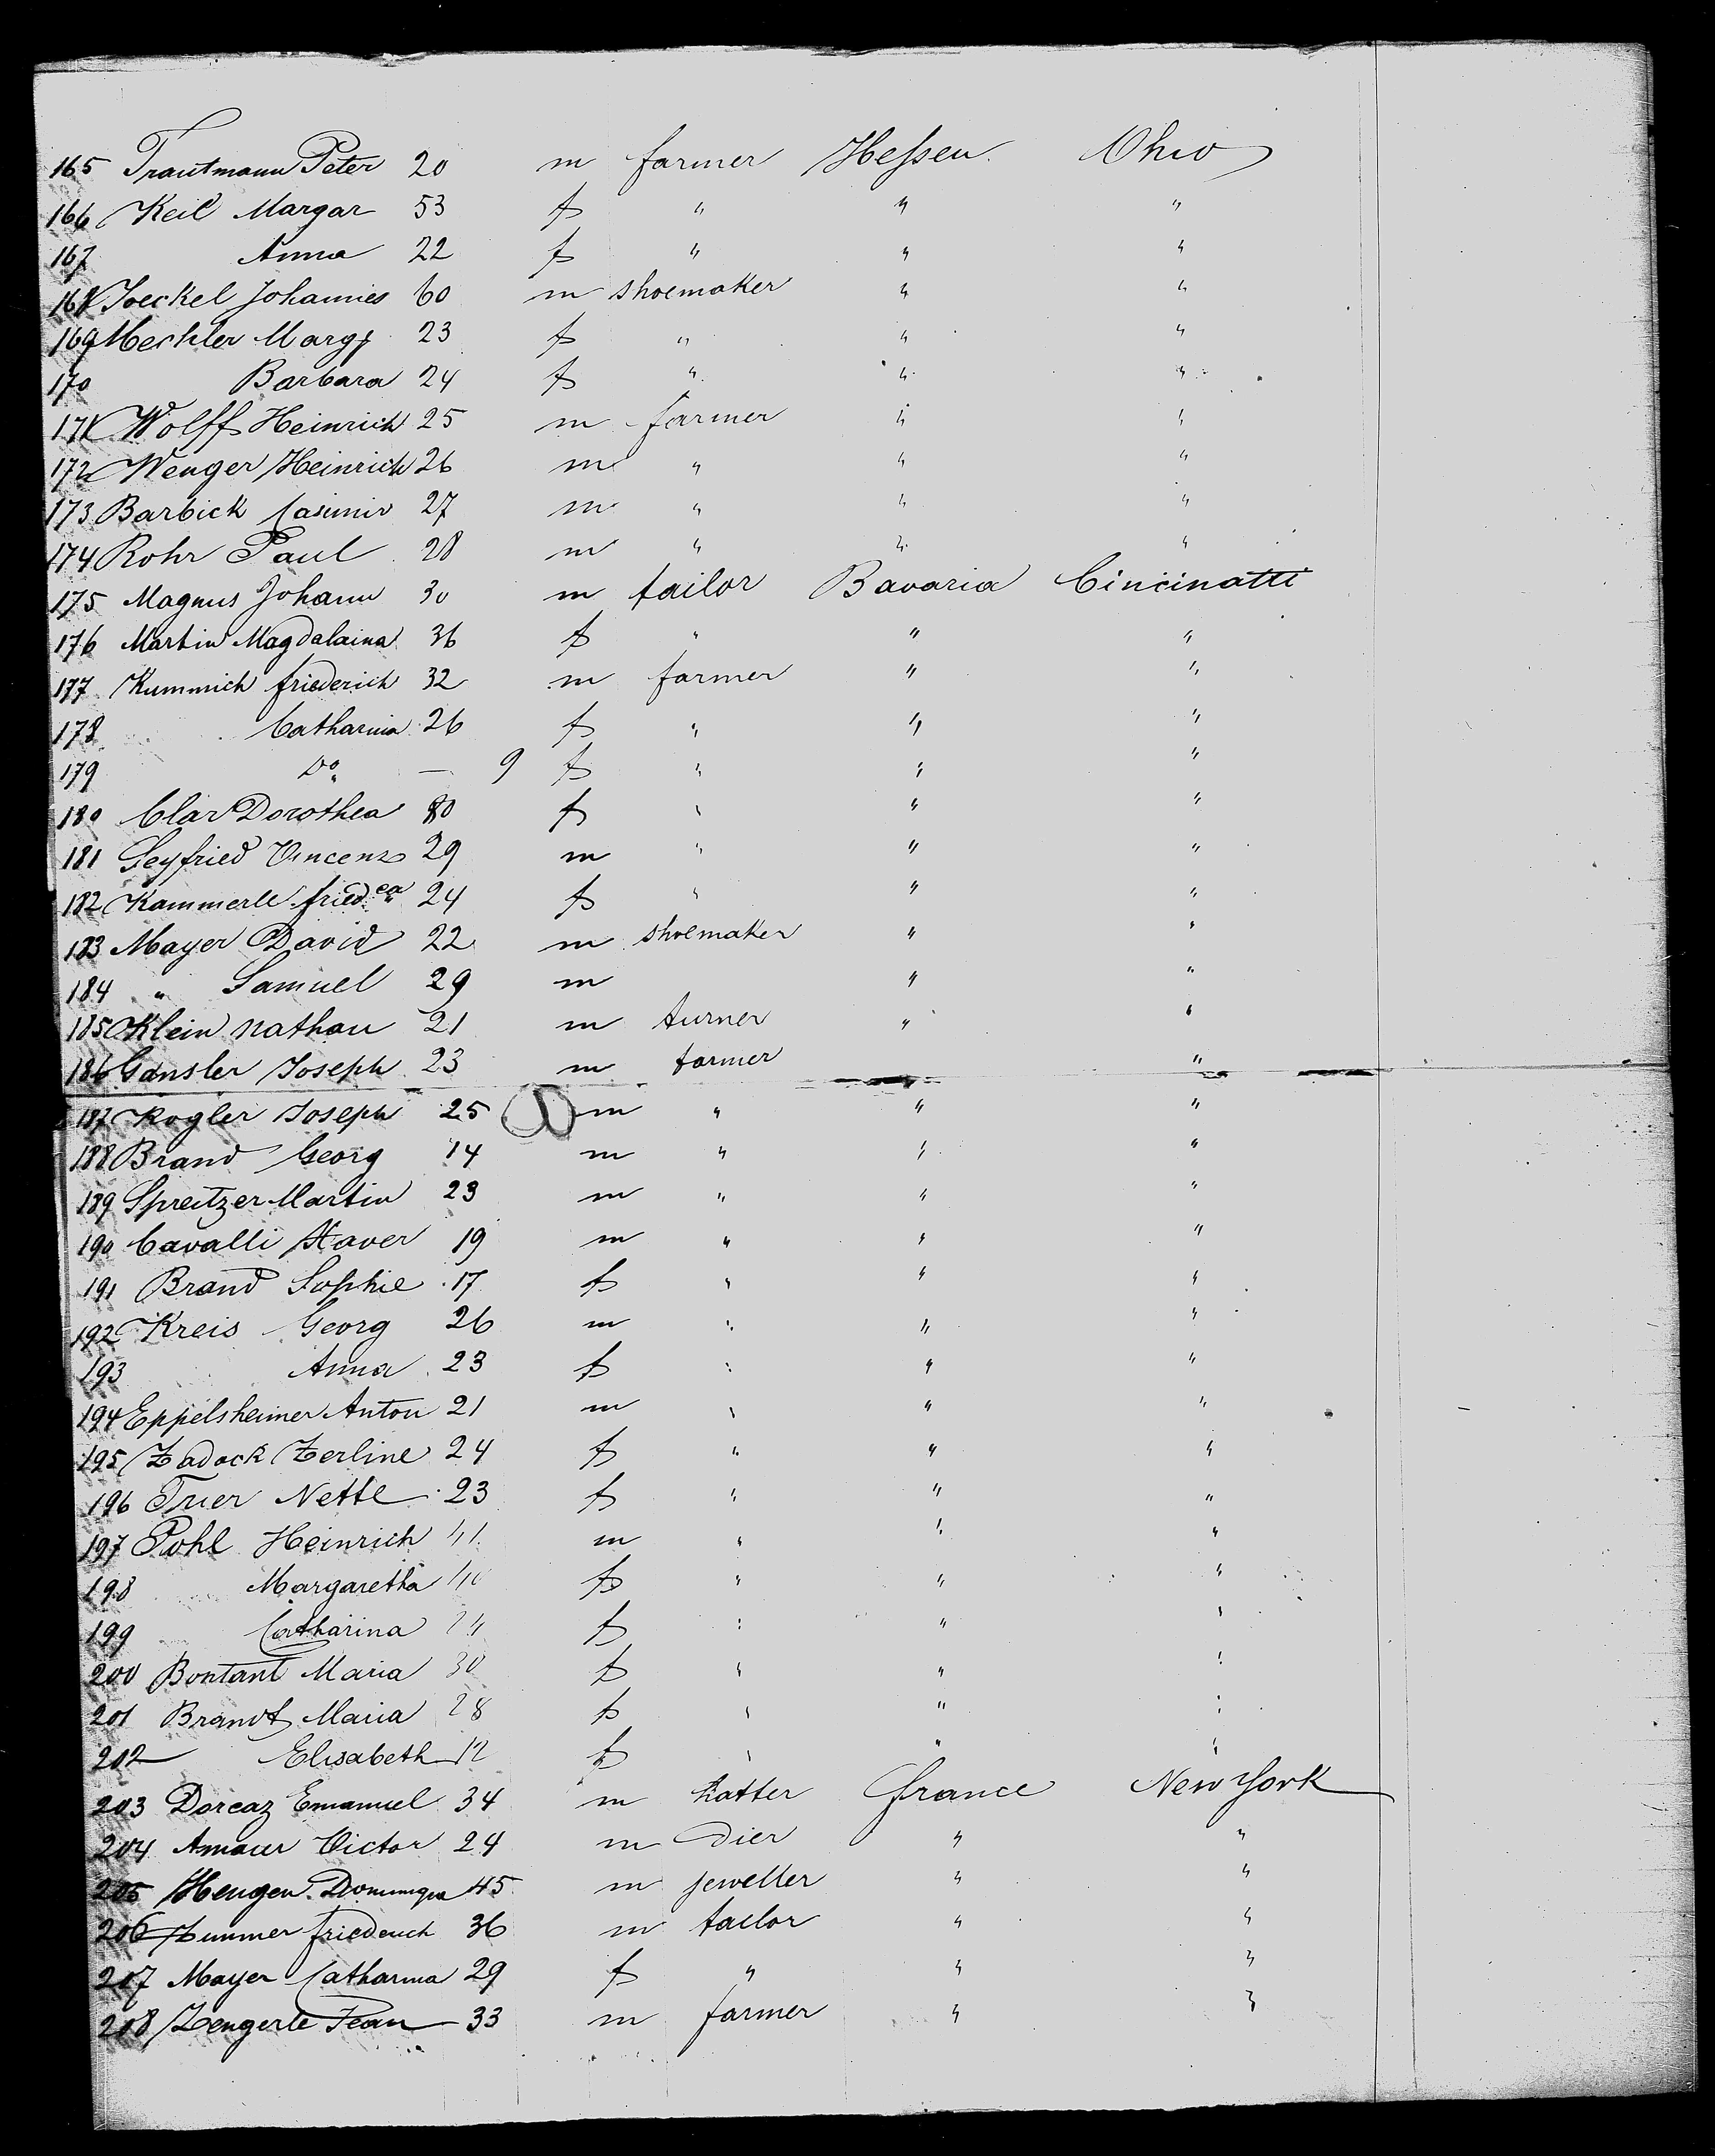 165 Trautmann Peter 20 m farmer Hessen Ohio
166 Keil Margar 53 f " " "
167 Anna 22 f " " "
168 Joeckel Johannes 60 m shoemaker " "
169 Mechler Marg 23 f " " "
170 Barbara 24 f " " "
171 Wolff Heinrich 25 m farmer " "
172 Wenger Heinrich 26 m " " "
173 Barbick Casimir 27 m " " "
174 Rohr Paul 28 m " " "
175 Magnus Johann 30 m tailor Bavaria Cincinatti
176 Martin Magdalaina 36 f " " "
177 Kummich friederich 32 m farmer " "
178 Catharina 26 f " " "
179 Do — 9 f " " "
180 Clar Dorothea 80 f " " "
181 Seyfried Vincenz 29 m " " "
182 Kammerle friedca 24 f " " "
183 Mayer David 22 m shoemaker " "
184 " Samuel 29 m " "
185 Klein Nathan 21 m turner " "
186 Gansler Joseph 23 m farmer "
187 Kogler Joseph 25 m " " "
188 Brand Georg 14 m " " "
189 Spreitzer Martin 23 m " " "
190 Cavalli Xaver 19 m " " "
191 Brand Sophie 17 f " " "
192 Kreis Georg 26 m " " "
193 Anna 23 f " " "
194 Eppelsheimer Anton 21 m " " "
195 Zadock Zerline 24 f " " "
196 Trier Nettl 23 f " " "
197 Pohl Heinrich 41 m " " "
198 Margaretha f " " "
199 Catharina f " " "
200 Bontant Maria 30 f " " "
201 Brandt Maria 28 f " " "
202 Elisabeth 12 f " " "
203 Dorcaz Emanuel 34 m hatter France New York
204 Amour Victor 24 m Dier " "
205 Hengen 45 m jeweller " "
206 friederich 36 m tailor " "
207 Mayer Catharina 29 f " " "
208 Zengerle Jean 33 m farmer " "